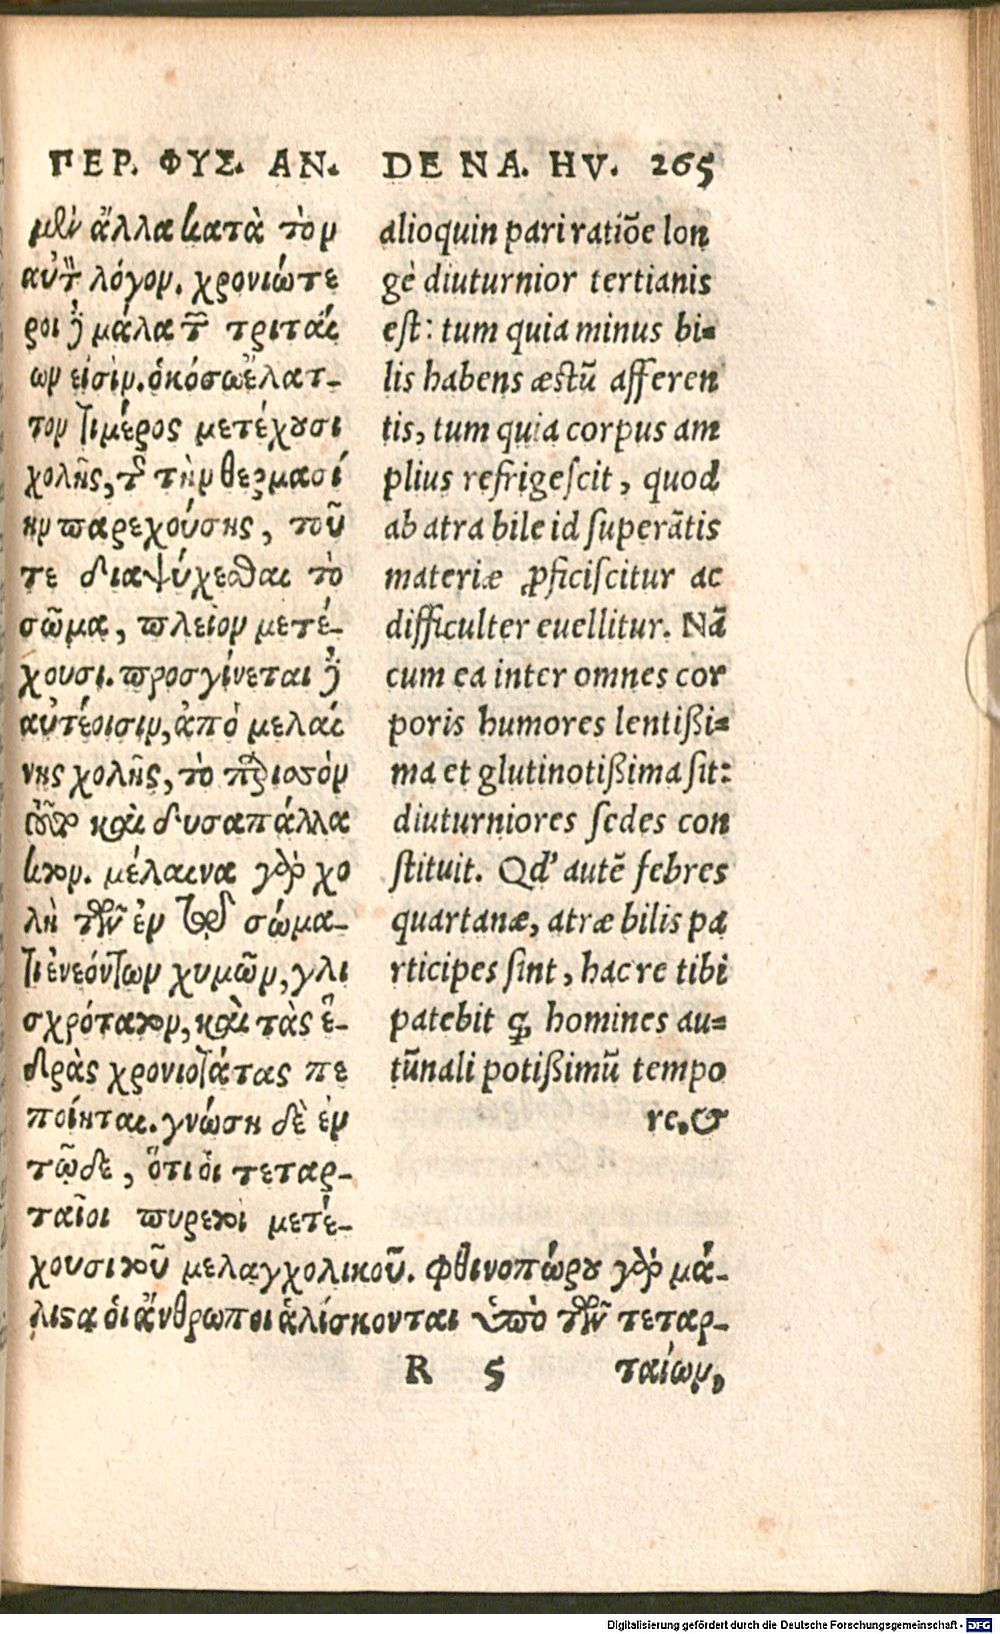 ΠΕΡ. ΦΥΣ. ΑΝ.
μὲν ἄλλα κατὰ τὸν
αὐτὸν λόγον. χρονιώτε
ροι δὲ μάλα τῶν τριταί
ων εἰσίν. ὁκόσῳ ἔλατ-
τον τι μέρος μετέχουσι
χολῆς, τῆς τὴν θερμασί
ην παρεχούσης, τοῦ
τε διαψύχεσθαι τὸ
σῶμα, πλεῖον μετέ-
χουσι. προσγίνεται δὲ
αὐτέοισιν, ἀπὸ μελαί
νης χολῆς, τὸ περιοσὸν
τοῦτο καὶ δυσαπάλλα
κτον. μέλαινα γὰρ χο
λὴ τῶν ἐν τῷ σώμα-
τι ἐνεόντων χυμῶν, γλι
σχρότατον, καὶ τὰς ἕ-
δρας χρονιοτάτας πε
ποίηται. γνώσῃ δὲ ἐν
τῷδε, ὅτι οἱ τεταρ-
ταῖοι πυρετοὶ μετέ-
χουσι τοῦ μελαγχολικοῦ. φθινοπώρου γὰρ μά-
λιστα οἱ ἄνθρωποι ἁλίσκονται ὑπὸ τῶν τεταρ-
DE NA. HV. 265
alioquin pari ratiõe lon
gè diuturnior tertianis
est: tum quia minus bi=
lis habens æstũ afferen
tis, tum quia corpus am
plius refrigescit, quod
ab atra bile id superãtis
materiæ ꝓficiscitur ac
difficulter euellitur. Nã
cum ea inter omnes cor
poris humores lentißi=
ma et glutinotißima sit:
diuturniores sedes con
stituit. Qd' autẽ febres
quartanæ, atræ bilis pa
rticipes sint, hac re tibi
patebit ꝙ homines au=
tũnali potißimũ tempo
re, &
R 5 ταίων,